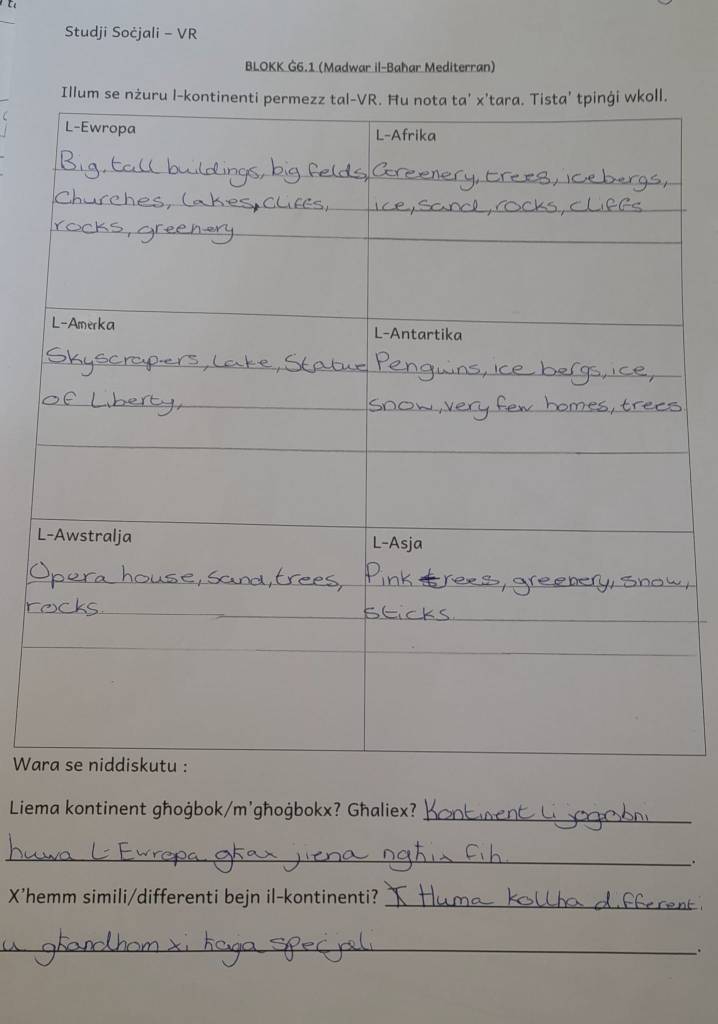 Studji Soċjali – VR
BLOKK Ġ6.1 (Madwar il-Baħar Mediterran)
Illum se nżuru l-kontinenti permezz tal-VR. Ħu nota ta' x'tara. Tista' tpinġi wkoll.
L-Ewropa
Big, tall buildings, big felds,
Churches, Lakes, cliffs,
rocks, greenery
L-Afrika
Greenery, trees, icebergs,
ice, sand, rocks, cliffs
L-Amerka
Skyscrapers, Lake, Statue
of Liberty,
L-Antartika
Penguins, ice bergs, ice,
snow, very few homes, trees
L-Awstralja
Opera house, sand, trees,
rocks.
L-Asja
Pink trees, greenery, snow,
sticks.
Wara se niddiskutu :
Liema kontinent għoġbok/m'għoġbokx? Għaliex? Kontinent li jogobni
huwa L-Ewropa għax jiena ngħix fih.
X'hemm simili/differenti bejn il-kontinenti? Huma kollha differenti
u għandhom xi ħaġa speċjali.